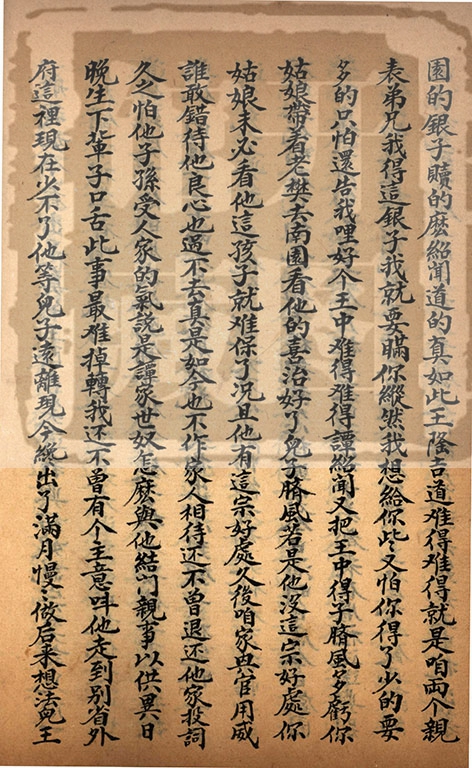 園的銀子贖的麽紹聞道的真如此王隆吉道难得难得就是咱両个親
表弟兄我得這銀子我就要瞞你縱然我想給你些又怕你得了少的要
多的只怕還告我哩好个王中难得难得譚紹聞又把王中得子臍風多虧你
姑娘帶着老樊去南園看他的喜治好了兒子臍風若是他沒這宗好處你
姑娘未必看他這孩子就难保了况且他有這宗好處久後咱家與官用威
誰敢錯待他良心也過不去真是如今也不作家人相待还不曽退还他家投詞
久之怕他子孫受人家的氣說是譚家世奴怎麽與他結門親事以供異日
晚生下輩子口舌此事最难掉轉我还不曽有个主意呌他走到别省外
府這裡現在少不了他等兒子遠離現今纔出了滿月慢〻做后来想法兒王